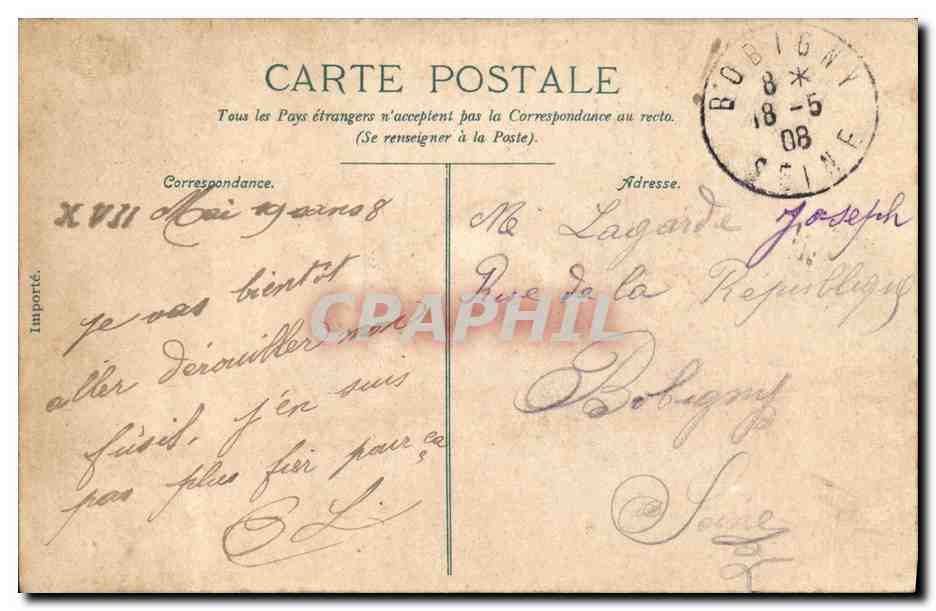 CARTE POSTALE
Tous les Pays étrangers n'acceptent pas la Correspondance au recto.
(Se renseigner à la Poste).
BOBIGNY
8 *
18 -5
08
SEINE
Correspondance.
XVII Mai
je vas bientôt
aller dérouiller mon
fusil, j'en suis
pas plus fier pour ça
Importé.
Adresse.
Mr Lagarde Joseph
Rue de la République
Bobigny
Seine
CPAPHIL